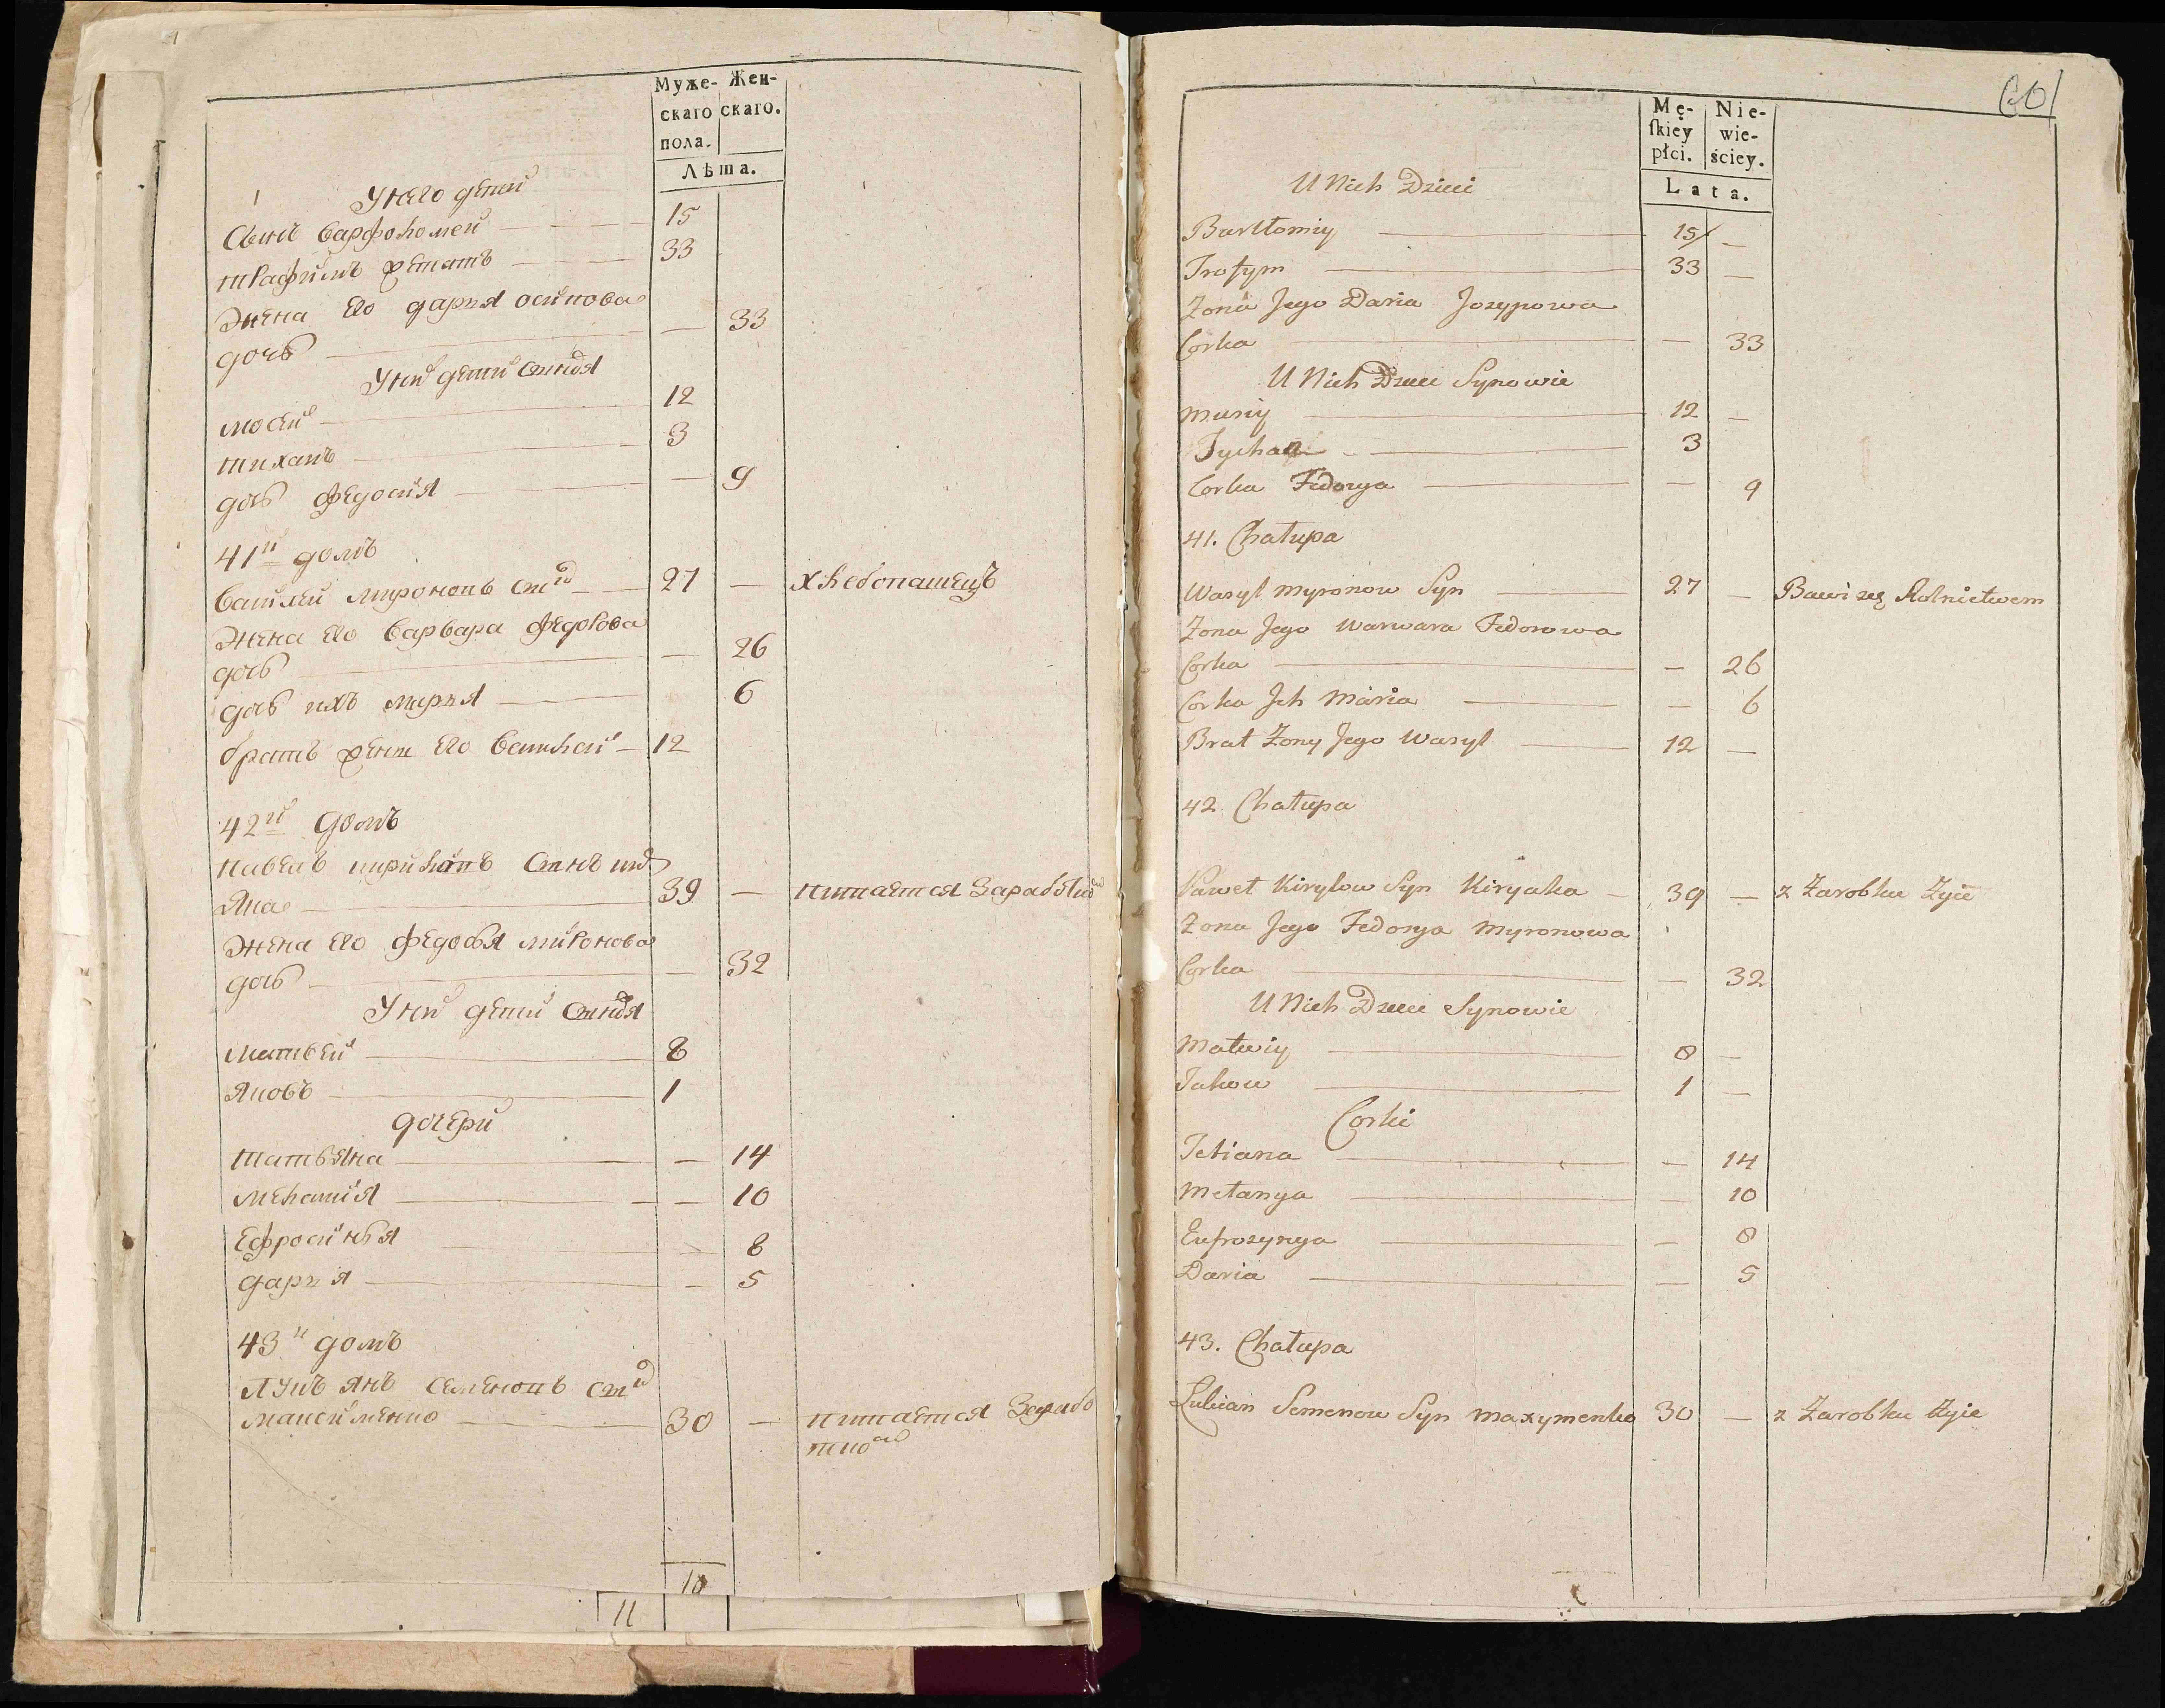 Муже- Жен-
скаго скаго.
пола.
Лѣта.
У него дети
Сынъ варфоломей 15
трафимъ женатъ 33
Жена Его дарья осипова
дочь — 33
У них дети Сыновя
мосей 12
тиханъ 3
дочь федосия — 9
41й домъ
василей миронопъ Сынъ 27 — хлебопашецъ
Жена Его варвара федорова
дочь — 26
дочь ихъ марья 6
братъ жены Его василей 12
42й домъ
павелъ кирилопъ Сынъ кирь
яка 39 — питается Заработкой
Жена Его федосья миронова
дочь — 32
У них дети Сыновя
матвей 8
яковъ 1
дочери
татьяна — 14
мелания — 10
Ефросинья — 8
дарья — 5
43й домъ
лукъянъ семенопъ Сынъ
максименко 30 — питается Зарабо
ткой
10
11
60
Mę- Nie-
skiey wie-
płci. ściey.
Lata.
U Nich Dzieci
Bartłomiy 15 —
Trofym 33 —
Zona Jego Daria Jozypowa
Corka — 33
U Nich Dzieci Synowie
Musiy 12 —
Tychon 3
Corka Fedosya — 9
41. Chałupa
Wasyl Myronow Syn 27 — Bawi się Rolnictwem
Zona Jego Warwara Fedorowa
Corka — 26
Corka Ich Maria — 6
Brat Zony Jego Wasyl 12 —
42 Chałupa
Paweł Kirylow Syn Kiryaka 39 — z Zarobku Zyie
Zona Jego Fedosya Myronowa
Corka — 32
U Nich Dzieci Synowie
Matwiy 8 —
Jakow 1 —
Corki
Tetiana — 14
Melanya — 10
Eufrozynya — 8
Daria — 5
43. Chałupa
Lukian Semenow Syn Maxymenko 30 — z Zarobku Zyie